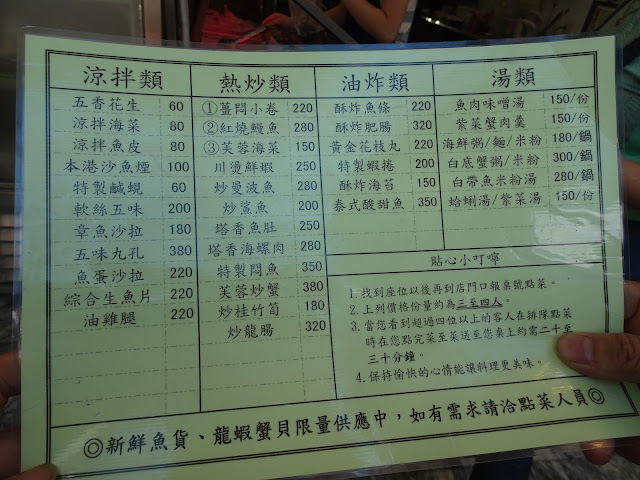 涼拌類
五香花生 60
涼拌海菜 80
涼拌魚皮 80
本港沙魚煙 100
特製鹹蜆 60
軟絲五味 200
章魚沙拉 180
五味九孔 380
魚蛋沙拉 220
綜合生魚片 220
油雞腿 220
熱炒類
①薑悶小卷 220
②紅燒鰻魚 280
③芙蓉海菜 150
川燙鮮蝦 250
炒曼波魚 280
炒鯊魚 200
塔香魚肚 250
塔香海螺肉 280
特製悶魚 350
芙蓉炒蟹 380
炒桂竹筍 180
炒龍腸 320
油炸類
酥炸魚條 220
酥炸肥腸 320
黃金花枝丸 220
特製蝦捲 200
酥炸海苔 150
泰式酸甜魚 350
湯類
魚肉味噌湯 150/份
紫菜蟹肉羹 150/份
海鮮粥/麵/米粉 180/鍋
白底蟹粥/米粉 300/鍋
白帶魚米粉湯 280/鍋
蛤蜊湯/紫菜湯 150/份
貼心小叮嚀
1.找到座位以後再到店門口報桌號點菜。
2.上列價格份量約為三至四人。
3.當您看到超過四位以上的客人在排隊點菜
時在您點完菜至菜送至您桌上約需二十至
三十分鐘。
4.保持愉快的心情能讓料理更美味。
◎新鮮魚貨、龍蝦蟹貝限量供應中，如有需求請洽點菜人員◎